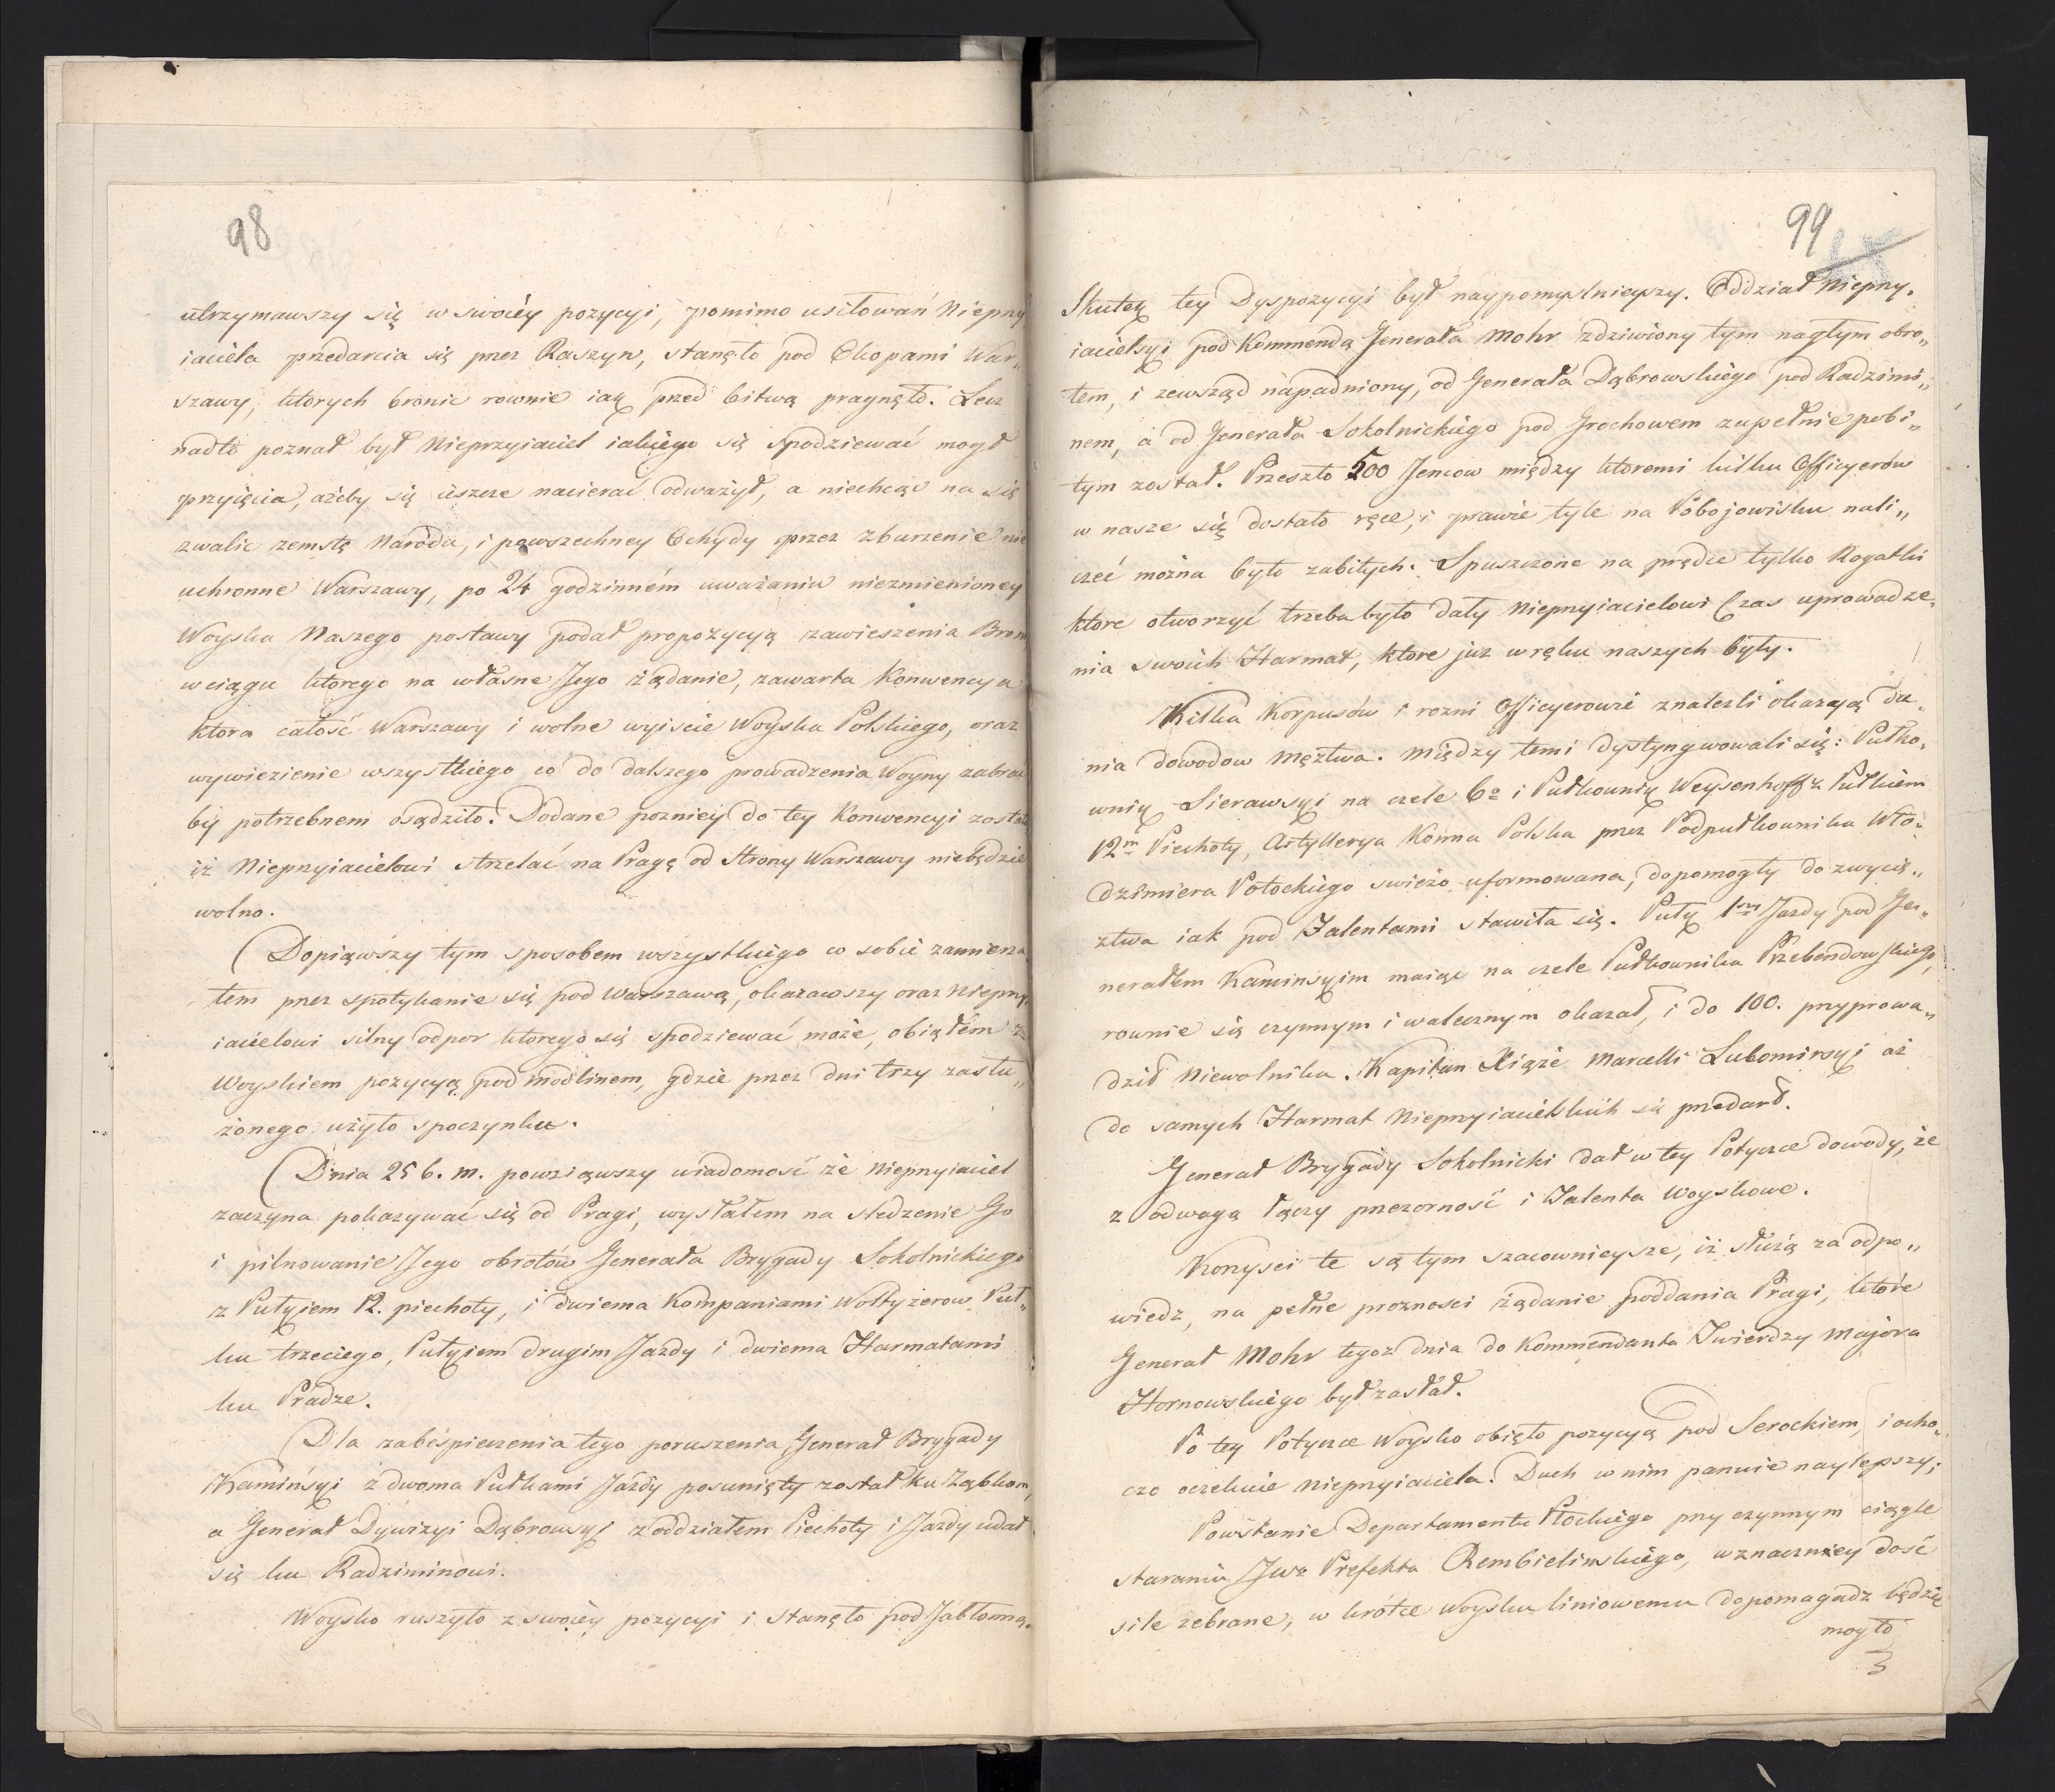 98
utrzymawszy się w swoiéy pozycyi, pomimo usiłowań Niepny
iaciela przedarcia się przez Raszyn, stanęło pod Okopami War„
szawy, których bronic rownie iak przed bitwą pragnęło. Lecz
nadto poznał był Nieprzyiaciel iakiego się spodziewać mogł
przyięcia, ażeby się ieszcze nacierać odważył, a niechcąc na się
zwalic zemstę Narodu, i powszechney Ochydy przez zburzenie nie
uchronne Warszawy, po 24 godzinném uważaniu niezmienioney
Woyska Naszego postawy podał propozycyą zawieszenia Broni,
w ciągu którego na własne Jego żądanie, zawarta Konwencya
ktora całość Warszawy i wolne wyiscie Woyska Polskiego, oraz
wywiezienie wszystkiego co do dalszego prowadzenia Woyny zabrać
by potrzebnem osądziło. Dodane pozniey do tey Konwencyi zostało
iż Niepnyiacielowi strzelać na Pragę od Strony Warszawy niebędzie
wolno.
Dopiąwszy tym sposobem wszystkiego co sobie zamierza
łem pnez spotykanie się pod Warszawą, okazawszy oraz Niepny,
iacielowi silny odpor ktorego się spodziewać może, obiąłém z
Woyskiem pozycyą pod Modlinem, gdzie pnez dni trzy zasłu„
żonego użyło spoczynku.
Dnia 25 b. m. powziąwszy wiadomość że Niepnyiaciel
zaczyna pokazywać się od Pragi, wysłałem na sledzenie Go
i pilnowanie Jego obrotów Generała Brygady Sokolnickiego
z Pułkiem 12. piechoty, i dwiema Kompaniami Woltyżerow Puł„
ku trzeciego, Pułkiem drugim Jazdy i dwiema Harmatami
ku Pradze.
Dla zabespieczenia tego poruszenia, Generał Brygady
Kamiński z dwoma Pułkami Jazdy posunięty został ku Ząbkom,
a Generał Dywizyi Dąbrowski z oddziałem Piechoty i Jazdy udał
się ku Radziminowi.
Woysko ruszyło z swoiéy pozycyi i stanęło pod Jabłonną.
99
Skutek tey Dyspozycyi był naypomyslnieyszy. Oddział Niepny„
iacielski pod Kommendą Generała Mohr zdziwiony tym nagłym obro„
tem, i zewsząd napadniony, od Generała Dąbrowskiégo pod Radzimi„
nem, a od Generała Sokolnickiégo pod Grochowem zupełnie pobi„
tym został. Przeszło 500 Jencow między ktoremi kilku Officyerów
w nasze się dostało ręce, i prawie tyle na Pobojowisku nali„
czeć można było zabitych. Spuszczone na prędce tylko Rogatki
ktore otworzyć trzeba było dały Niepnyiacielowi Czas uprowadze„
nia swoich Harmat, ktore już w ręku naszych były.
Kilka Korpusów i rozni Officyerowie znalezli okazyą da„
nia dowodow męztwa. Między temi dystyngwowali się: Pułko„
wnik Sierawski na czele 6o i Pułkownik Weysenhoff z Pułkiem
12m Piechoty, Artyllerya Konna Polska pnez Podpułkownika Wło„
dzimiera Potockiego swieżo uformowana, dopomogły do zwycię„
ztwa iak pod Falentami stawiła się. Pułk 1szy Jazdy pod Ge„
nerałem Kaminskim maiąc na czele Pułkownika Przebendowskiego,
rownie się czynnym i walecznym okazał, i do 100. pnyprowa„
dził Niewolnika. Kapitan Xiąże Marcelli Lubomirski aż
do samych Harmat Niepnyiacielskich się pnedarł.
Generał Brygady Sokolnicki dał w tey Potyczce dowody, że
z odwagą łączy pnezorność i Talenta Woyskowe.
Konysci te są tym szacownieysze, iż służą za odpo„
wiedz, na pełne proznosci żądanie poddania Pragi, które
Generał Mohr tegoż dnia do Kommendanta Twierdzy Majora
Hornowskiego był zasłał.
Po tey Potyczce Woysko obięło pozycyą pod Serockiem, i ocho„
czo oczekuie Niepnyiaciela. Duch w nim panuie naylepszy;
Powstanie Departamentu Płockiego pny czynnym ciągle
staraniu JWo Prefekta Rembielinskiego, w znaczney dość
sile zebrane, w krótce Woysku liniowemu dopomagadz będzie
mogło